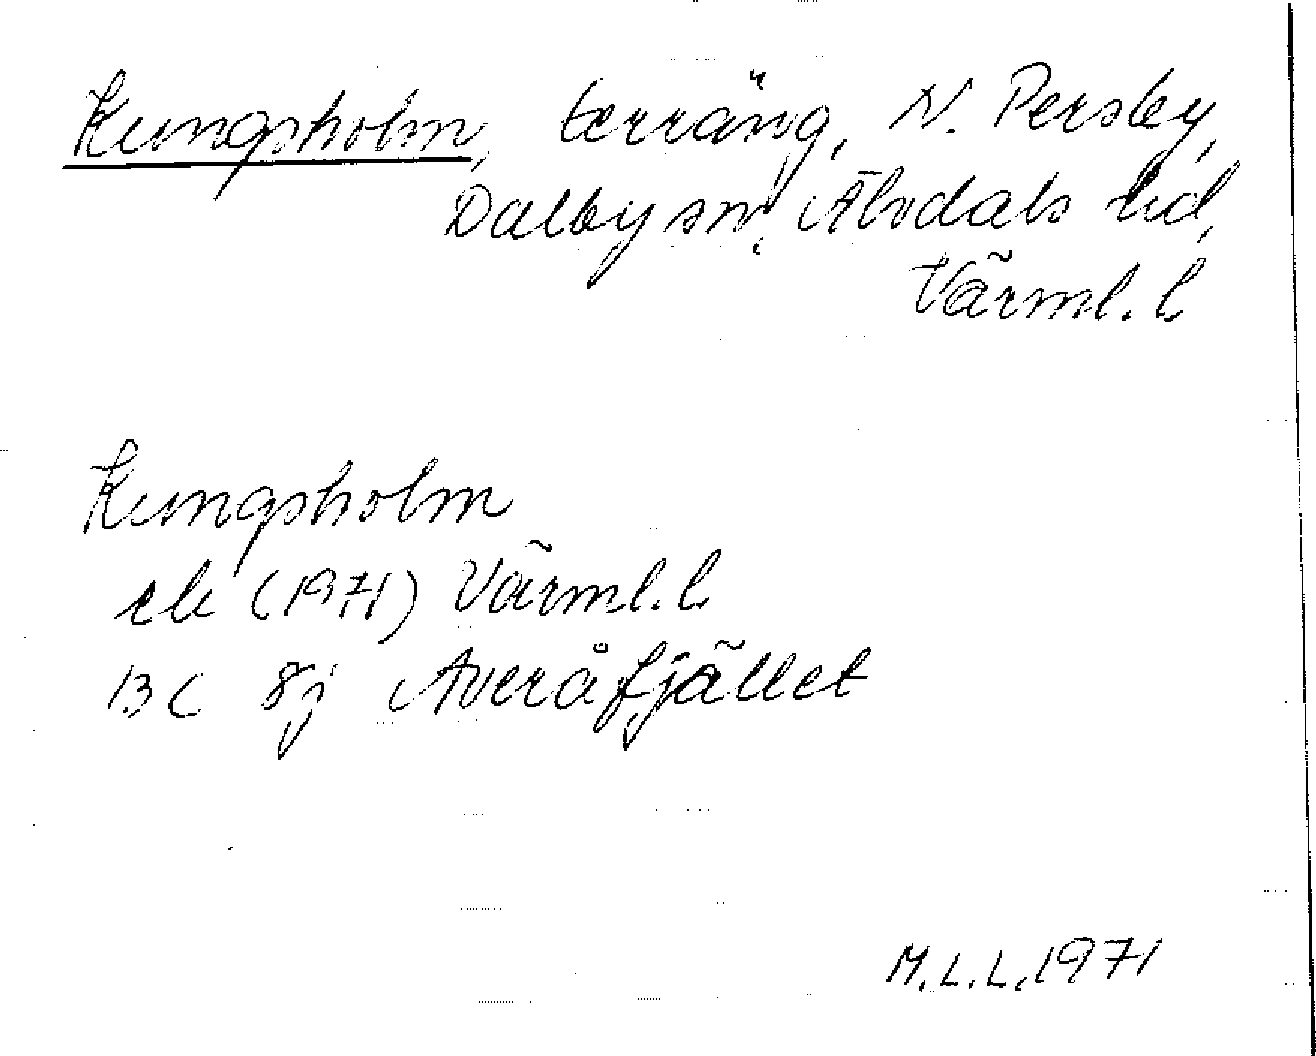 Kungsholm, terräng, N. Persby,
Dalby sn, Älvdals hd,
Värml. l.
Kungsholm
ek (1971) Värml. l.
13 C 8j Averåfjället
M.L.L. 1971